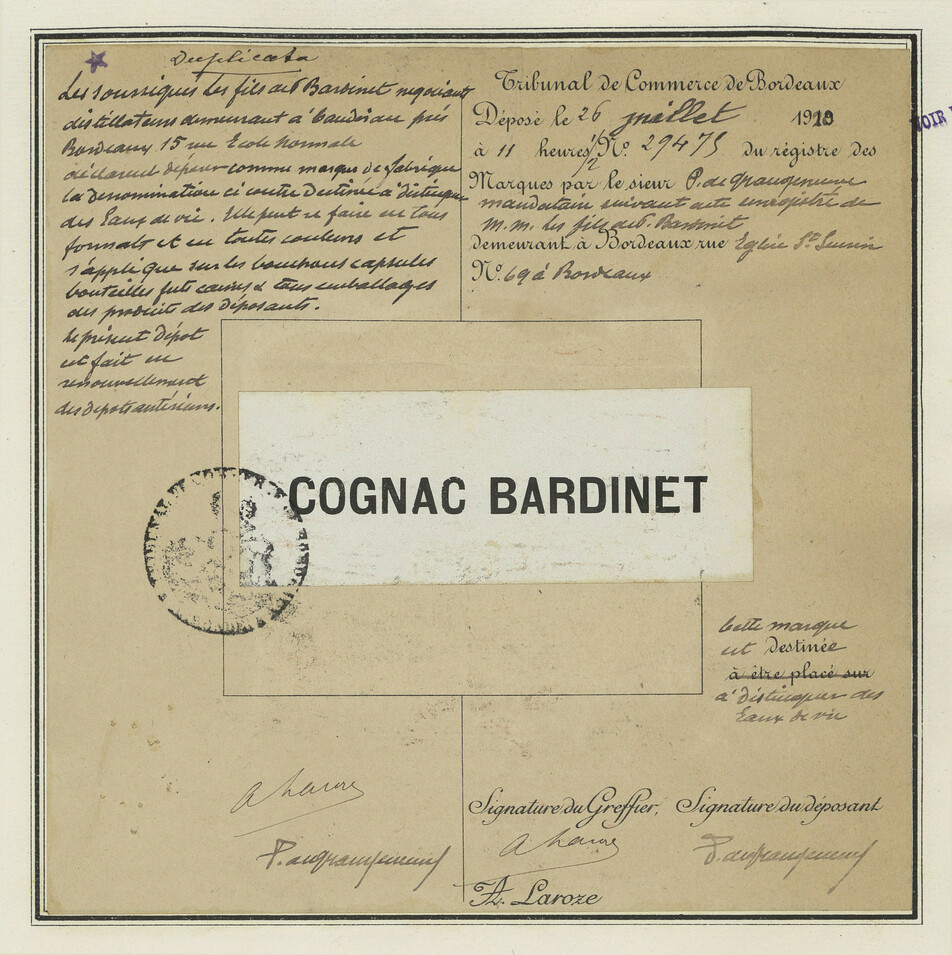 Duplicata
Les soussignés Les fils de P. Bardinet negociants
distillateurs demeurant à Caudéran près
Bordeaux 15 rue Ecole Normale
déclarent déposer comme marque de fabrique
la denomination ci contre Destinée à distinguer
des Eaux de vie. Elle peut se faire en tous
formats et en toutes couleurs et
s'applique sur les bouchons capsules
bouteilles futs caisses & tous emballages
des produits des déposants.
Le présent dépôt
est fait en
renouvellement
des depots antérieurs.
Tribunal de Commerce de Bordeaux
Déposé le 26 juillet 1919
à 11 heures 1/2 No. 29475 du régistre des
Marques par le sieur P. de Grangeneuve
mandataire suivant acte enregistré de
M.M. Les fils de P. Bardinet
demeurant à Bordeaux rue Eglise St Seurin
No. 69 à Bordeaux
VOIR
COGNAC BARDINET
TRIBUNAL DE COMMERCE DE BORDEAUX
Cette marque
est destinée
à être placé sur
à distinguer des
Eaux de vie
Signature du Greffier, Signature du déposant
A Laroze
P. de Grangeneuve
A Laroze
P. de Grangeneuve
A. Laroze